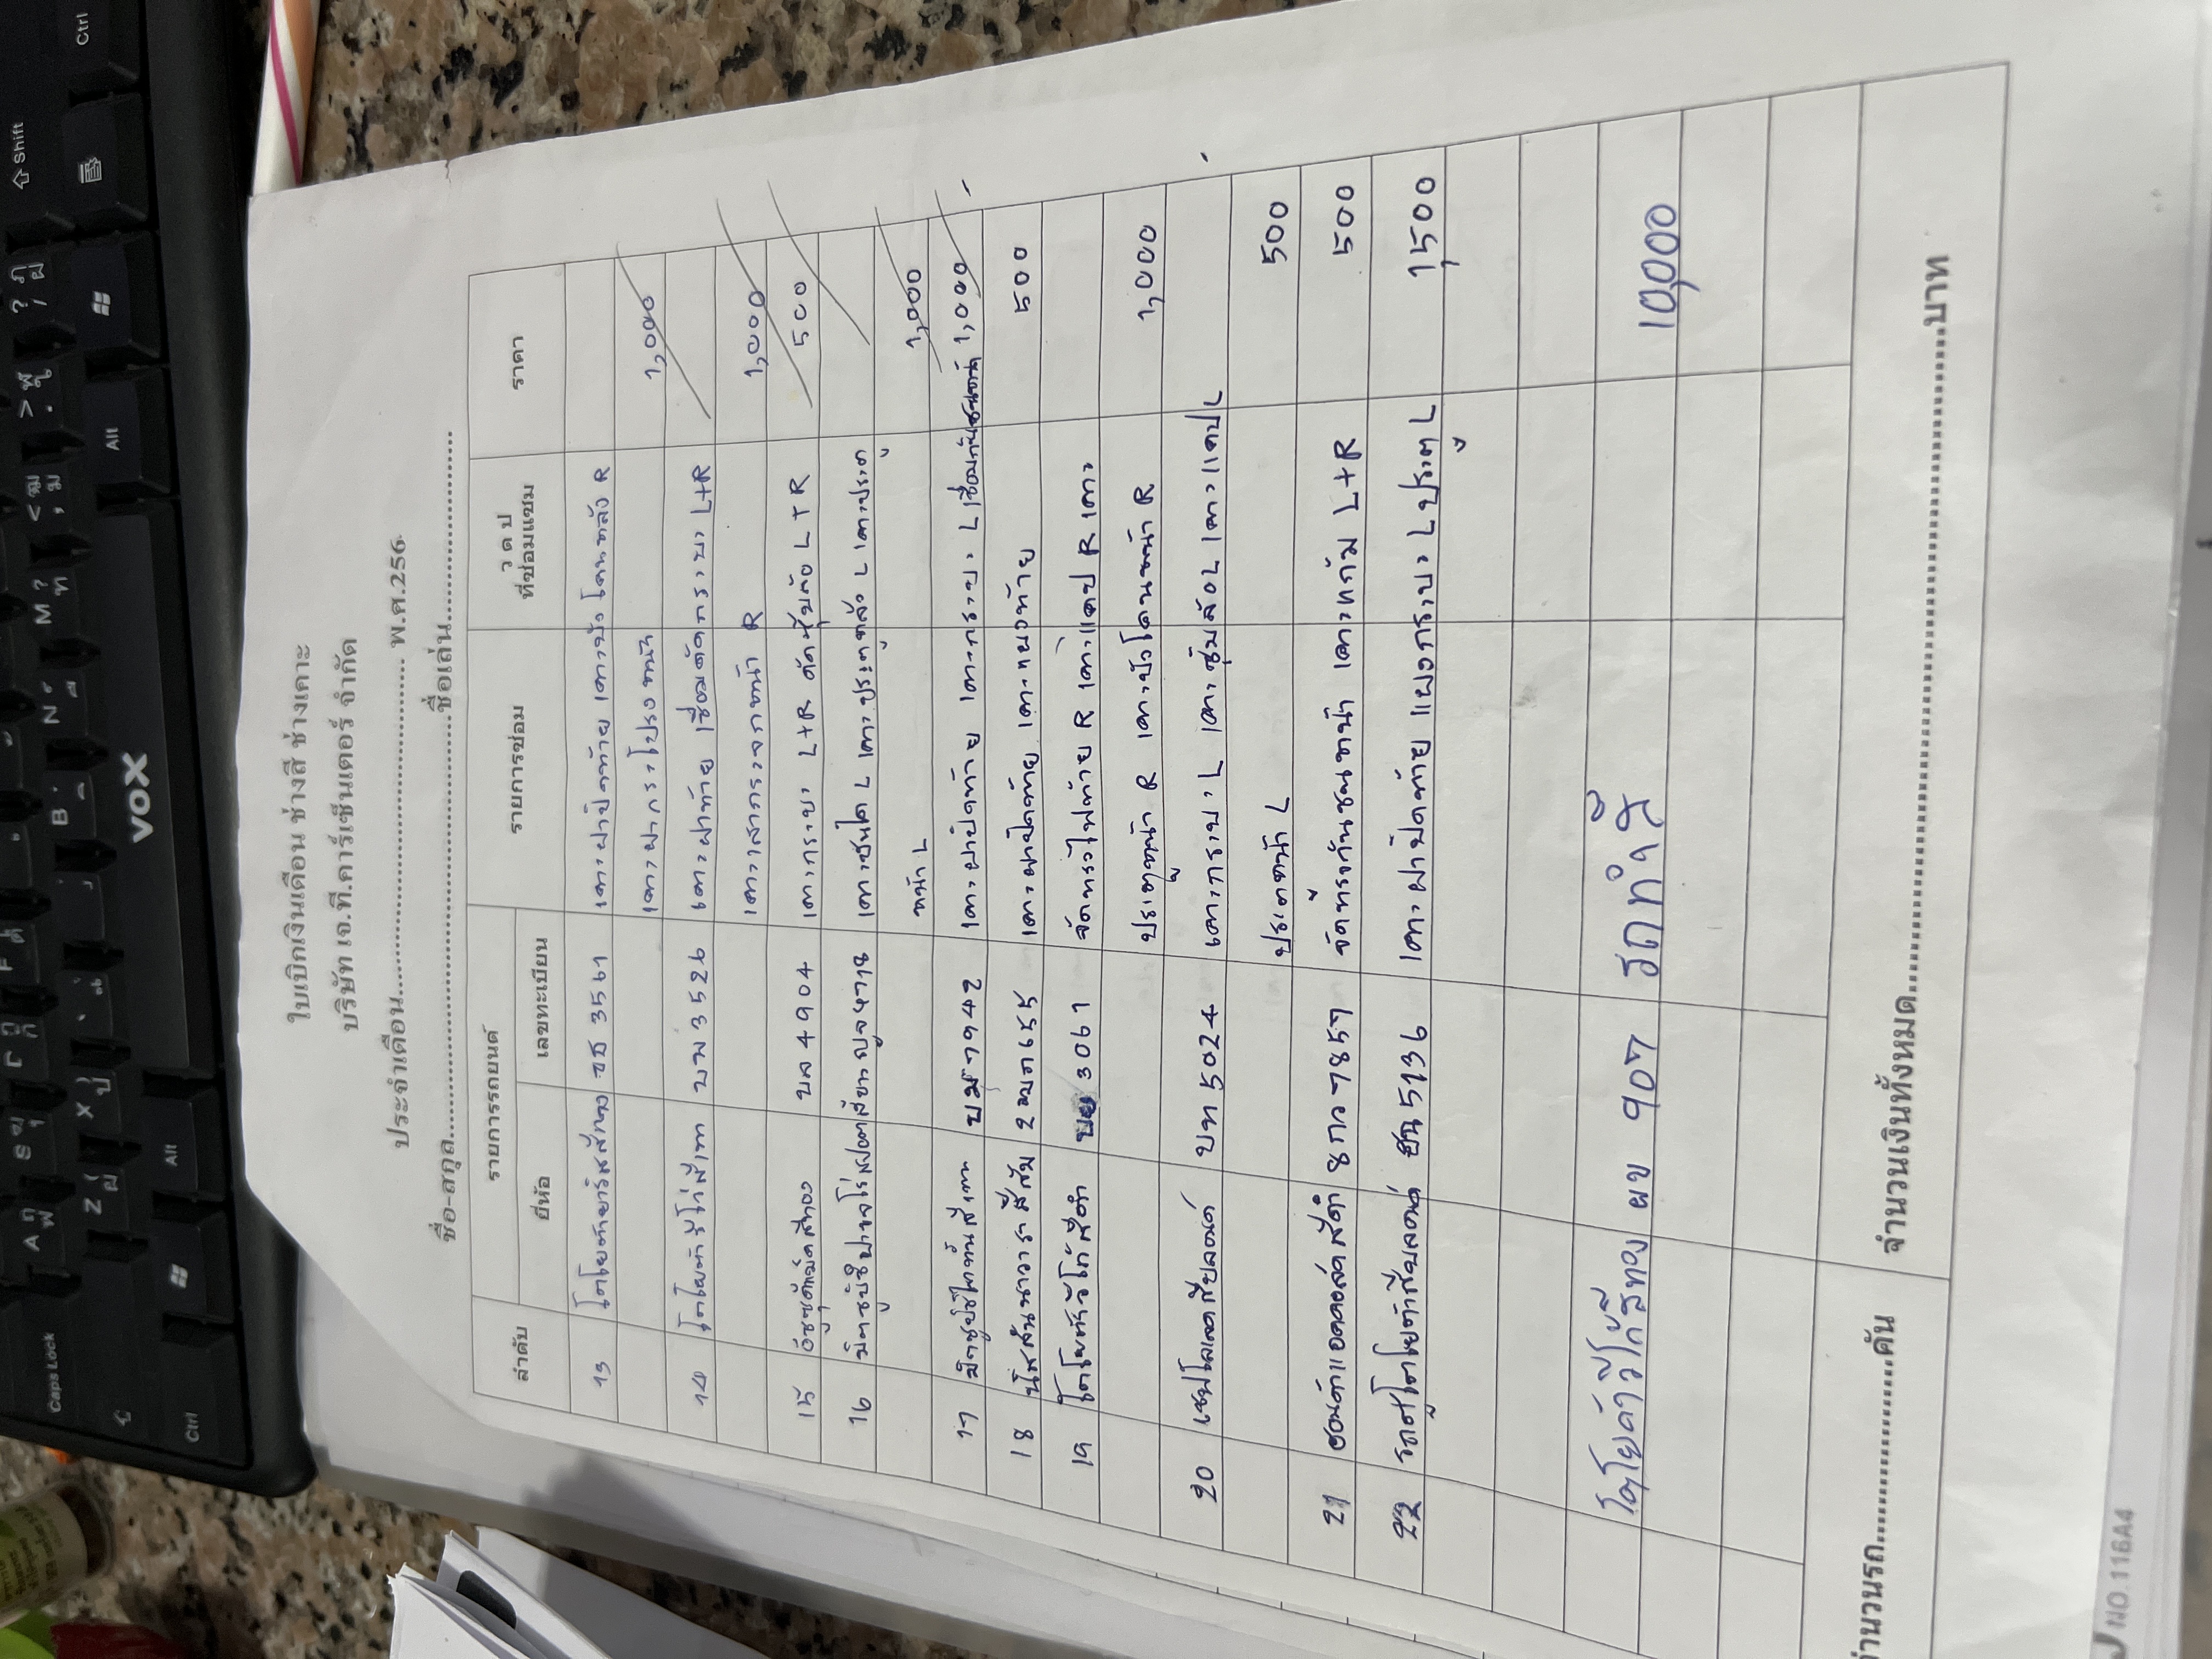 ใบเบิกเงินเดือน ช่างสี ช่างเคาะ
บริษัท เจ.ที.คาร์เซ็นเตอร์ จำกัด
ประจำเดือน.......................................... พ.ศ.256
ชื่อ-สกุล..........................................ชื่อเล่น..........................
ลำดับ รายการรถยนต์ รายการซ่อม ว ด ป ที่ซ่อมแซม ราคา
ยี่ห้อ เลขทะเบียน
13 โตโยต้ายารีส ชธ 3561 เคาะฝาปิดท้าย เคาะบังโคลนหลัง R
เคาะฝากระโปรงหน้า 1,000
14 โตโยต้าวีโก้สีเทา 3526 เคาะฝาท้าย เชื่อมตัดกระบะ L+R
เคาะเสากระจกหน้า R 1,000
15 อีซูซุดีแม็คสีทอง บล 4904 เคาะกระบะ L+R ตัดซุ้มล้อ L+R 500
16 มิตซูบิชิปาเจโร่สปอต เคาะบันได L เคาะประตูหลัง L เคาะประตู
หน้า L 1,000
17 มิตซูบิชิไทรทันสีเทา 7942 เคาะฝาปิดท้าย เคาะกระบะ L เชื่อมกันชนหน้า 1,000
18 นิสสันนาวาร่า เคาะฝาปิดท้าย เคาะแผงท้าย 500
19 โตโยต้าวีโก้สีดำ 3061 จัดทรงไฟท้าย R เคาะแคป R เคาะ
ประตูหน้า R เคาะบังโคลนหน้า R 1,000
20 เชฟโรเลต บท 5024 เคาะกระบะ L เคาะซุ้มล้อ L เคาะแคป L
ประตูหน้า L 500
21 ฮอนด้าแอคคอร์ดสีดำ 8กก 7857 จัดทรงกันชนหน้า เคาะแก้ม L+R 500
22 รถตู้โตโยต้า 5136 เคาะฝาปิดท้าย แผงกระบะ L ประตู L 1,500
โตโยต้าวีโก้สีทอง ผข 907 รถทำสี 10,000
จำนวนรถ..............คัน จำนวนเงินทั้งหมด..........................................บาท
NO.116A4
Caps Lock
Shift
Ctrl
Alt
VOX